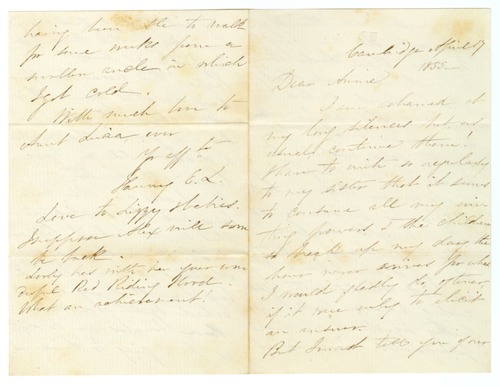 having been able to walk
for some weeks from a
swollen ancle in which
I got cold.
With much love to
Aunt ever
Yr aff te
Fanny E. L.
Love to Lizzy &
I suppose Alex will soon
be back.
has with her own won
derful Red Riding Hood.
What an achievement!
Cambridge April 17
1855
Dear Anne,
I am ashamed at
my long silences but as
usual continue them.
I have to write so regularly
to my sister that it seems
to consume all my wri
ting powers & the children
so break up my day the
hour never arrives for what
I would gladly do, oftener
if it were only to elicit
an answer.
But I must tell you of our